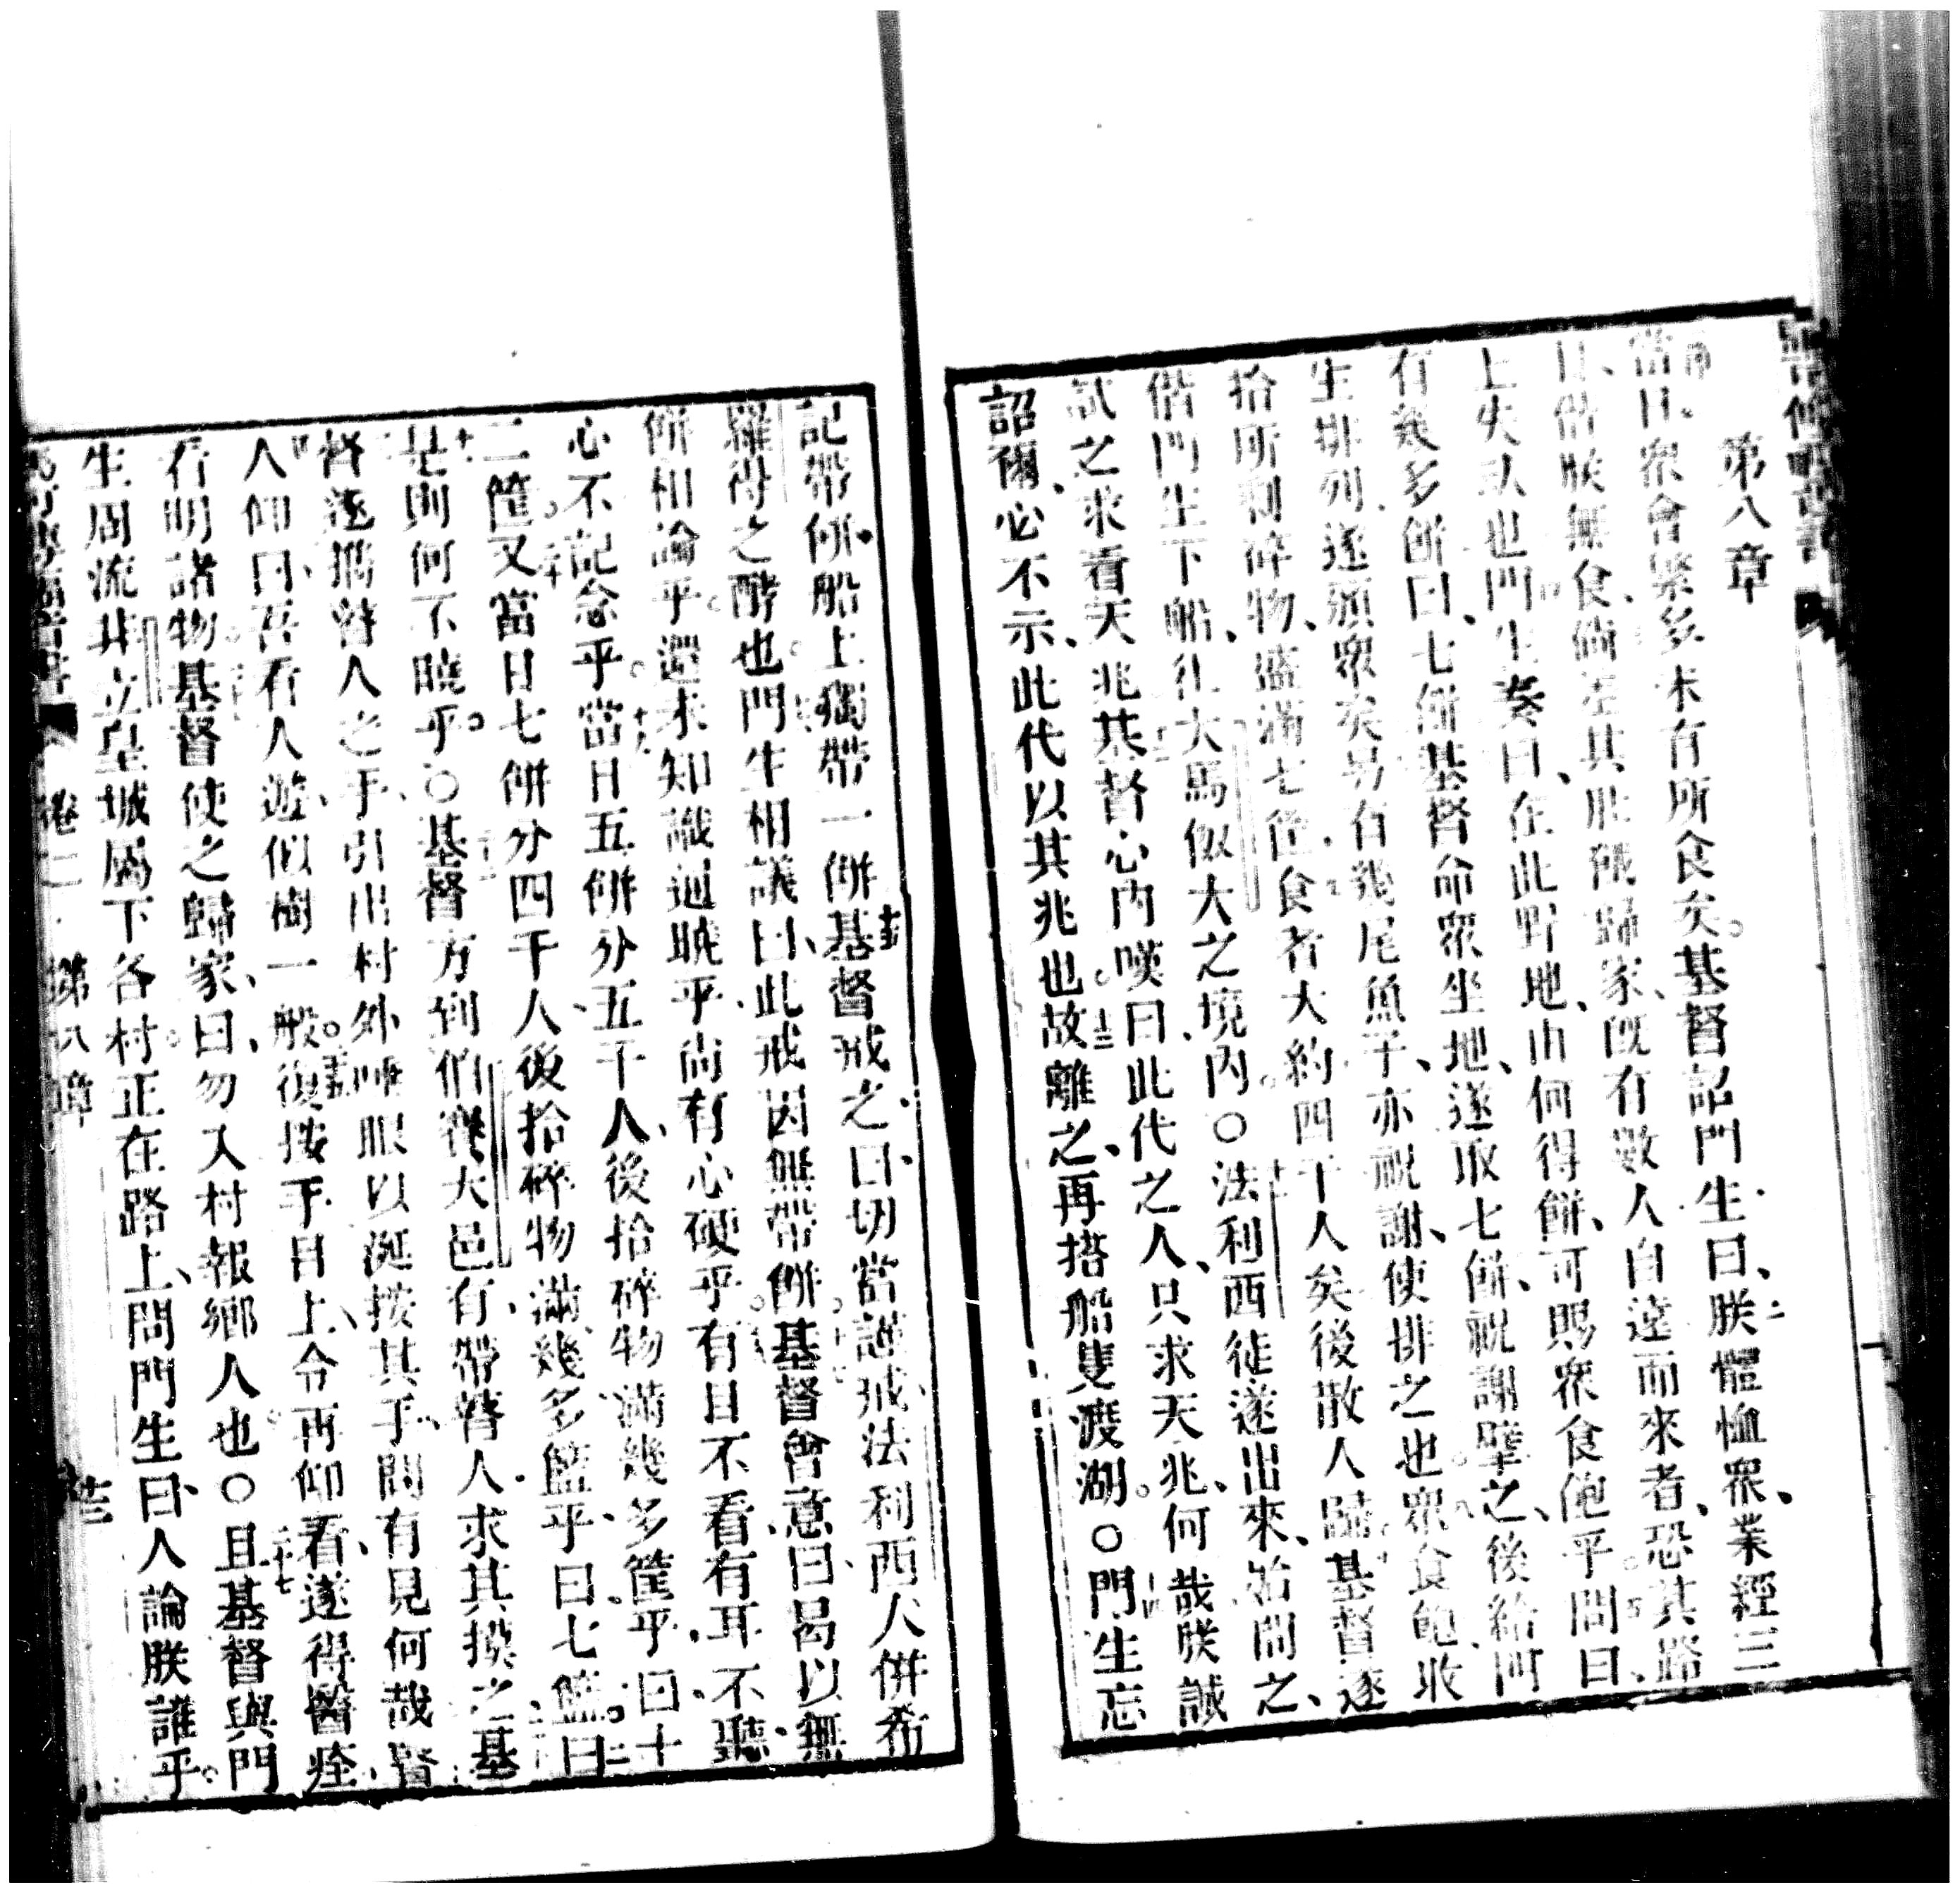 第八章
當日、眾會緊多、未有所食矣。基督詔門生曰、朕體恤眾、業經三
日、偕朕無食、倘空其肚餓歸家、既有數人自遠而來者、恐其路
上失臥也。門生奏曰、在此野地、由何得餅、可賜眾食飽乎。問曰、
有幾多餅。曰、七餅。基督命眾坐地、遂取七餅、祝謝擘之、後給門
生排列、遂頒眾矣。另有幾尾魚子、亦祝謝、使排之也。眾食飽、取
拾所剩碎物、盛滿七筐。食者大約四千人矣。後散人歸、基督遂
偕門生下船、往大馬似大之境內。○法利西徒遂出來、始問之、
試之、求看天兆。基督心內嘆曰、此代之人、只求天兆、何哉、朕誠
詔爾、必不示、此代以其兆也。故離之、再搭船隻渡湖。○門生忘
記帶餅、船上獨帶一餅。基督戒之、曰、切當謹戒法利西人併希
羅得之酵也。門生相議曰、此戒因無帶餅。基督會意曰、曷以無
餅相論乎。還未知識通曉乎。尚有心硬乎。有目不看、有耳不聽、
心不記念乎。當日五餅分五千人、後拾碎物滿幾多筐乎。曰、十
二筐。又當日七餅分四千人、後拾碎物滿幾多籃乎。曰、七籃。曰、
是則何不曉乎。○基督方到伯賽大邑、有帶瞽人、求其摸之。基
督遂攜瞽人之手、引出村外、唾眼以涎、按其手、問有見何哉。瞽
人仰曰、吾看人遊似樹一般。復按手目上、令再仰看、遂得醫痊、
看明諸物。基督使之歸家、曰、勿入村報鄉人也。○且基督與門
生周流非立皇城屬下各村、正在路上、問門生曰、人論朕誰乎。
卷二 第八章